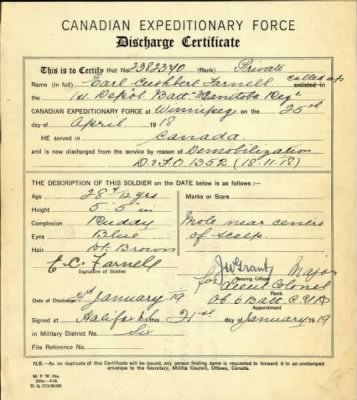 CANADIAN EXPEDITIONARY FORCE
Discharge Certificate
This is to Certify that No 2382340 (Rank) Private
Name (in full) Earl Cuthbert Farnell called up enlisted in
the 1st Depot Batt Manitoba Regt
CANADIAN EXPEDITIONARY FORCE at Winnipeg on the 25th
day of April 1918
HE served in Canada
and is now discharged from the service by reason of Demobilization
D.R.O. 1352 (18.11.18)
THE DESCRIPTION OF THIS SOLDIER on the DATE below is as follows:
Age 28 yrs Marks or Scars
Height 5' 5" in
Complexion Ruddy Mole near centre
Eyes Blue of scalp.
Hair Dk Brown
E. C. Farnell
Signature of Soldier
J W Grant Major
Issuing Officer
for Lieut Colonel
Rank
Date of Discharge January 19 O. C. 6 Batt. C.G.R
Appointment
Signed at Halifax this 21st day of January 1919
in Military District No. Six
File Reference No.
N.B.—As no duplicate of this Certificate will be issued, any person finding same is requested to forward it in an unstamped
envelope to the Secretary, Militia Council, Ottawa, Canada.